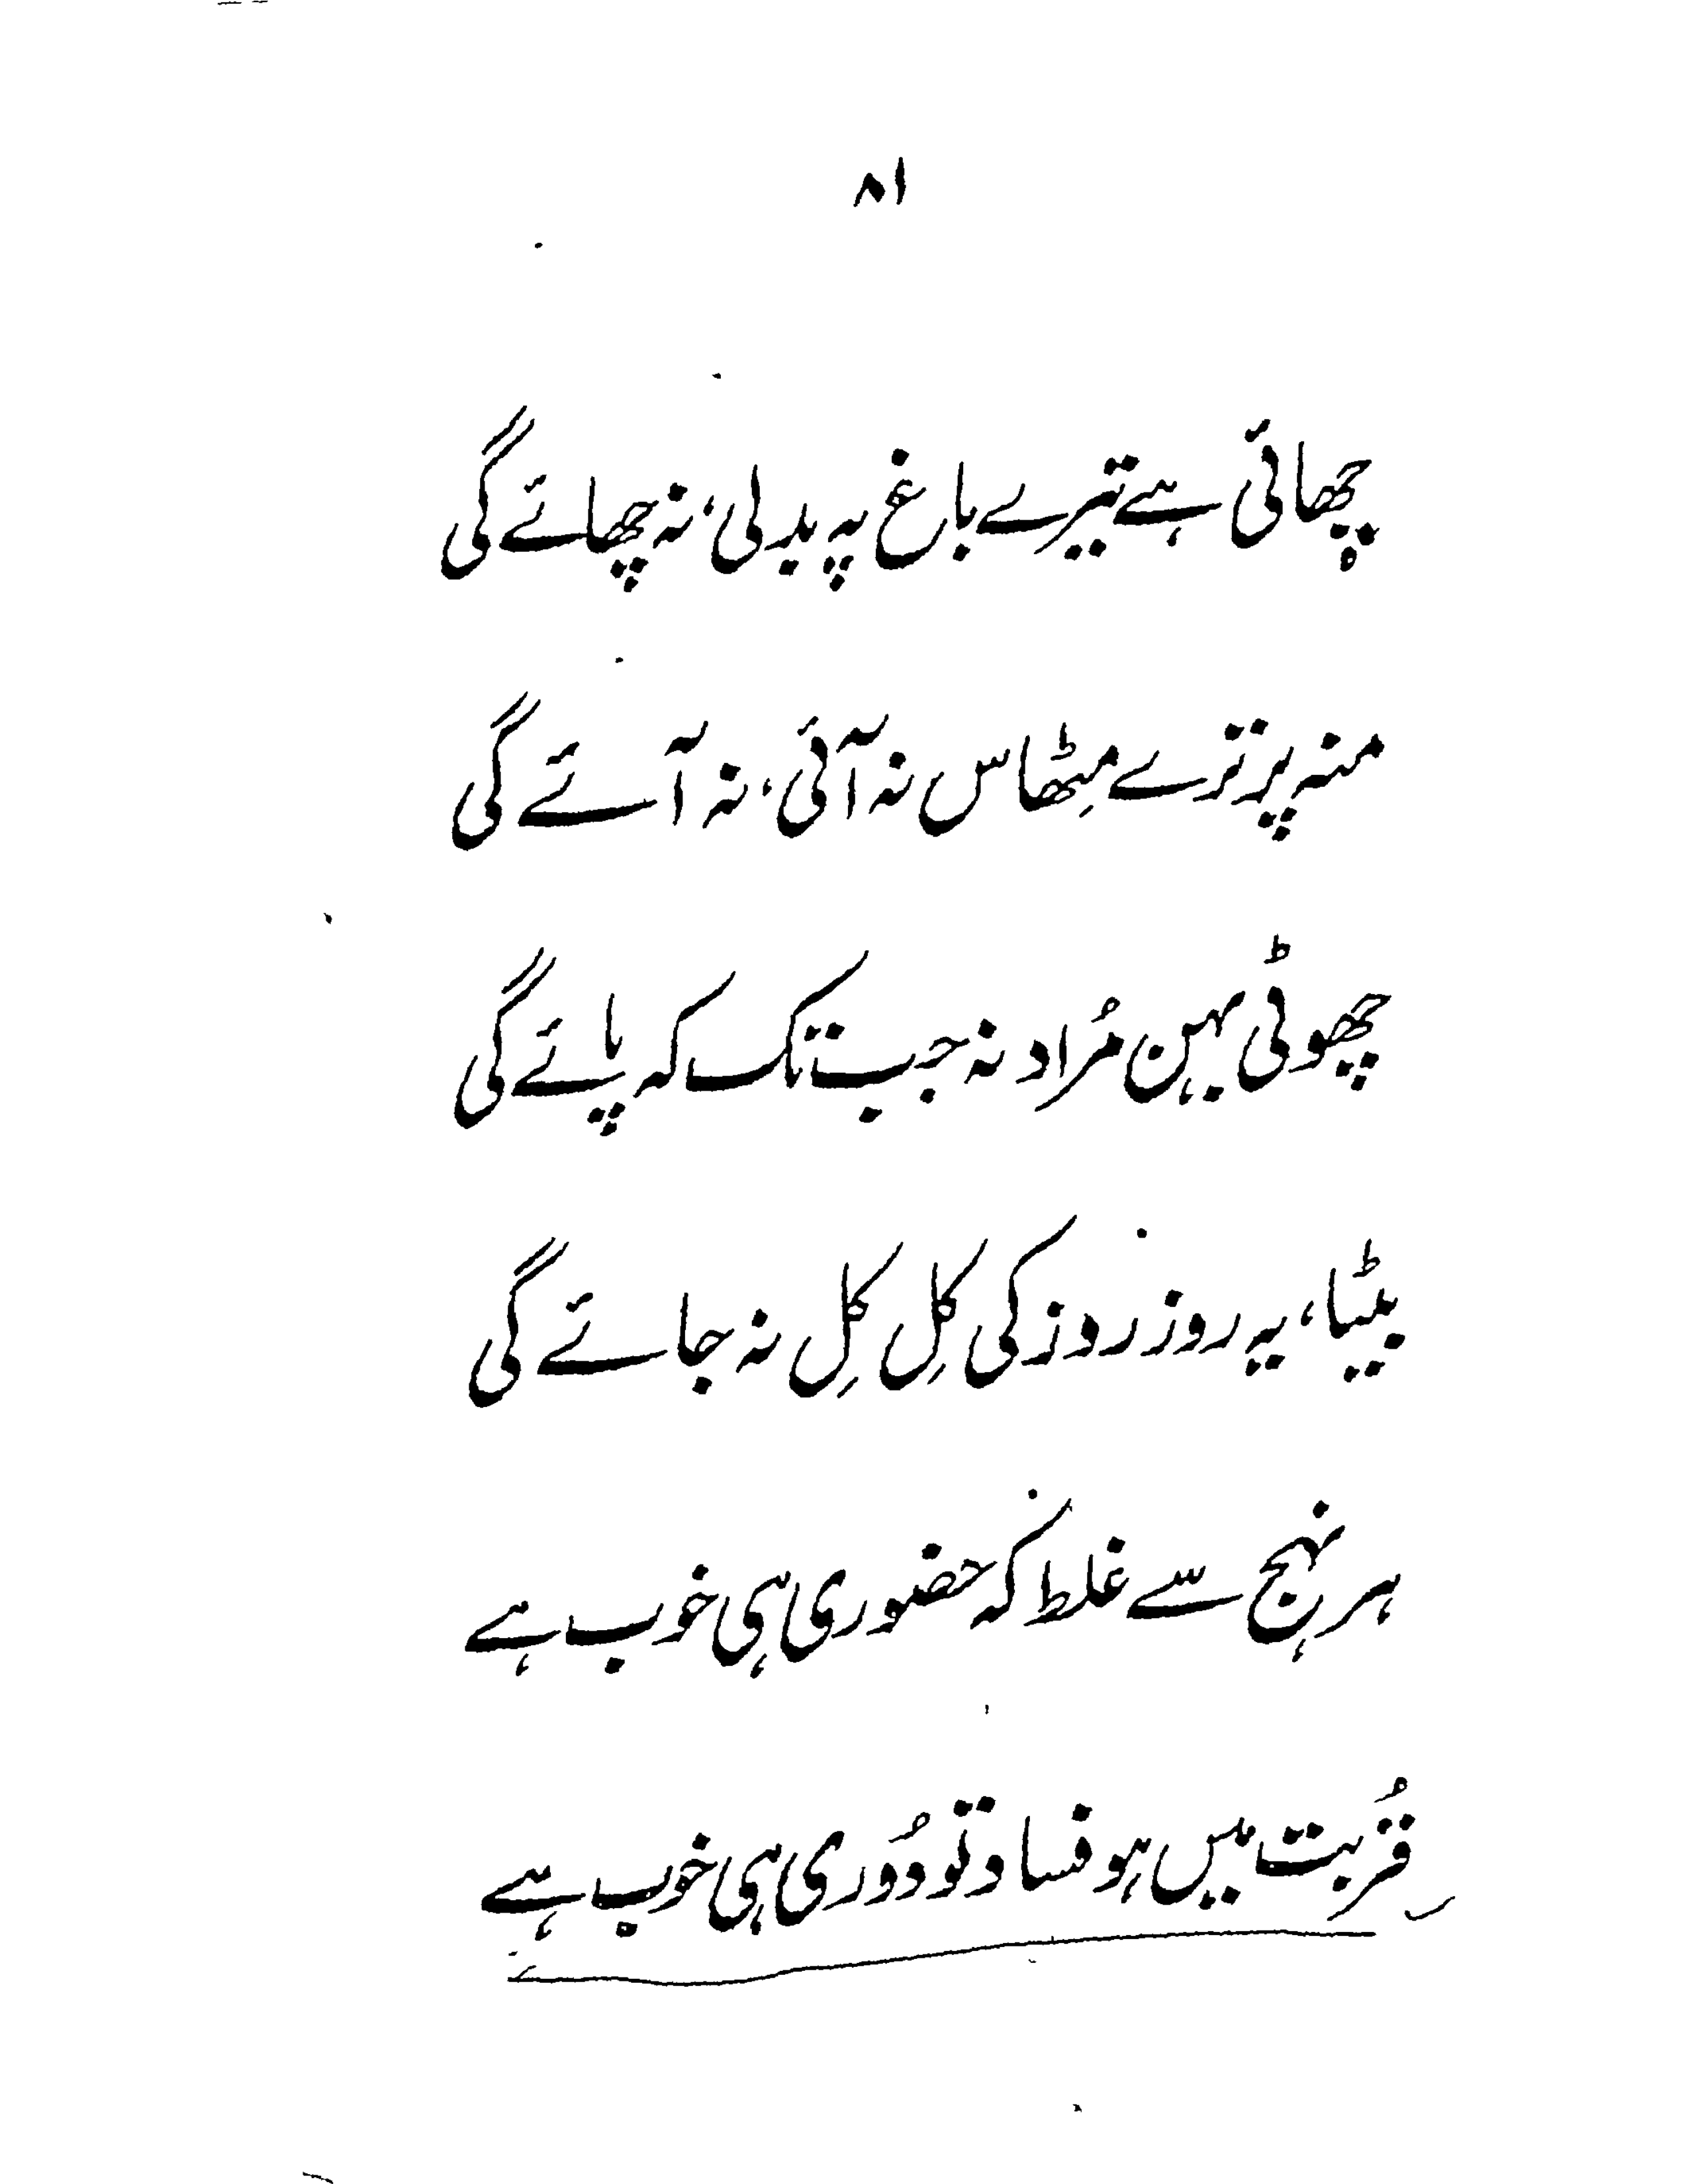 ۸۱
چھائی ہے تیرے باغ پہ بدلی، نہ چھائے گی
منہ پر ترے مِٹھاس نہ آئی، نہ آئے گی
چھوٹی بہن مُراد نہ جب تک کہ پائے گی
بیٹا، یہ روز روز کی کِل کِل نہ جائے گی
ہر نہج سے غلط کہ حضوری ہی خوب ہے
قُربت میں ہو فساد تو دُوری ہی خوب ہے